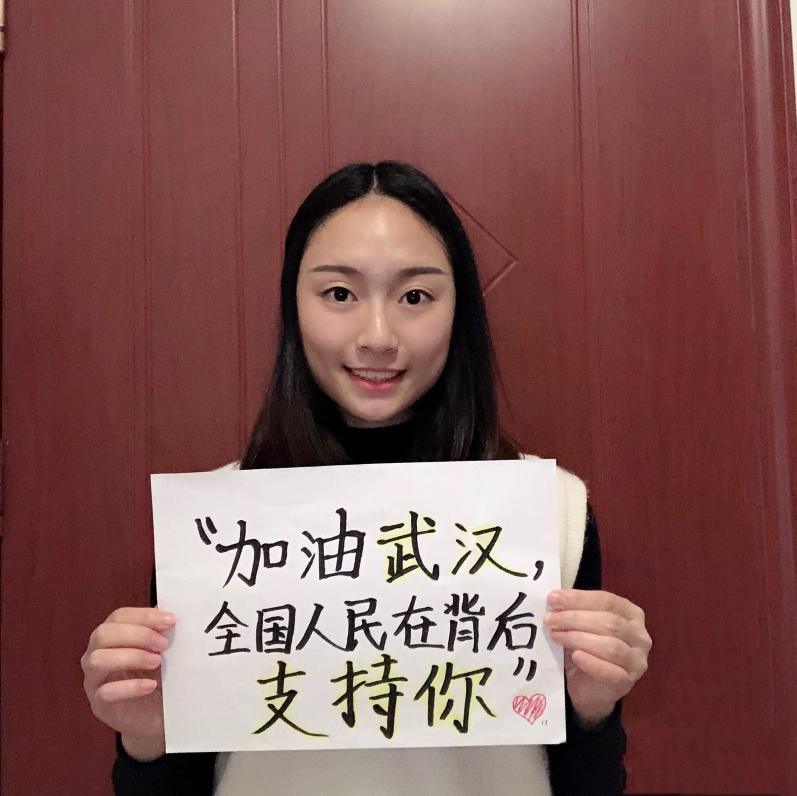 “加油武汉,
全国人民在背后
支持你”